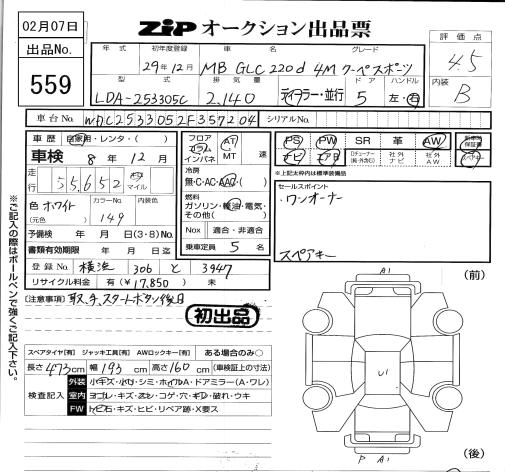 02月07日
ZIP オークション出品票
出品No.
559
年式 初年度登録 車名 グレード
29年12月 MB GLC220d 4M クーペスポーツ
型式 排気量 ドア ハンドル
LDA-253305C 2,140 ディーラー・並行 5 左・右
評価点
4.5
内装
B
車台No. WDC2533052F357204 シリアルNo.
車歴 自家用・レンタ・( )
車検 8年12月
走行 55,652 キロ マイル
色 ホワイト カラーNo. 149 内装色
(元色)
予備検 年 月 日(3・8)
書類有効期限 年 月 日迄
登録No. 横浜 306 と 3947
リサイクル料金 有(¥17,850) 未
フロア コラム インパネ AT MT 速
冷房
無・C・AC・AAC・( )
燃料
ガソリン・軽油・電気・その他( )
Nox 適合・非適合
乗車定員 5 名
PS PW SR 革 AW 新車時保証書
ナビ エアB 社外ナビ 社外AW スペアキー
※上記太枠内は標準装備品
セールスポイント
・ワンオーナー
スペアキー
注意事項 取、手、スタートボタン後日
初出品
※ご記入の際はボールペンで強くご記入下さい。
スペアタイヤ[有] ジャッキ工具[有] AWロックキー[有] ある場合のみ○
長さ 473cm 幅 193cm 高さ 160cm (車検証上の寸法)
検査記入
外装 小キズ・小凹・シミ・ホイルA・ドアミラー(A・ワレ)
室内 ヨゴレ・キズ・スレ・コゲ・穴・キレ・破れ・ウキ
FW トビ石・キズ・ヒビ・リペア跡・X要ス
(前)
A1
U1
P A1
(後)